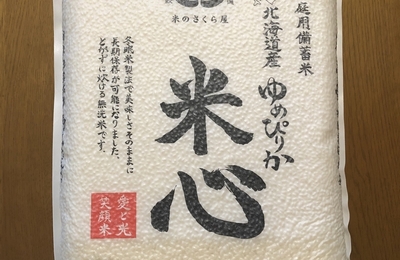 米のさくら屋
庭用備蓄米
北海道産
ゆめぴりか
米心
冬眠米製法で美味しさそのままに
長期保存が可能になりました。
とがずに炊ける無洗米です。
愛と光
笑顔米